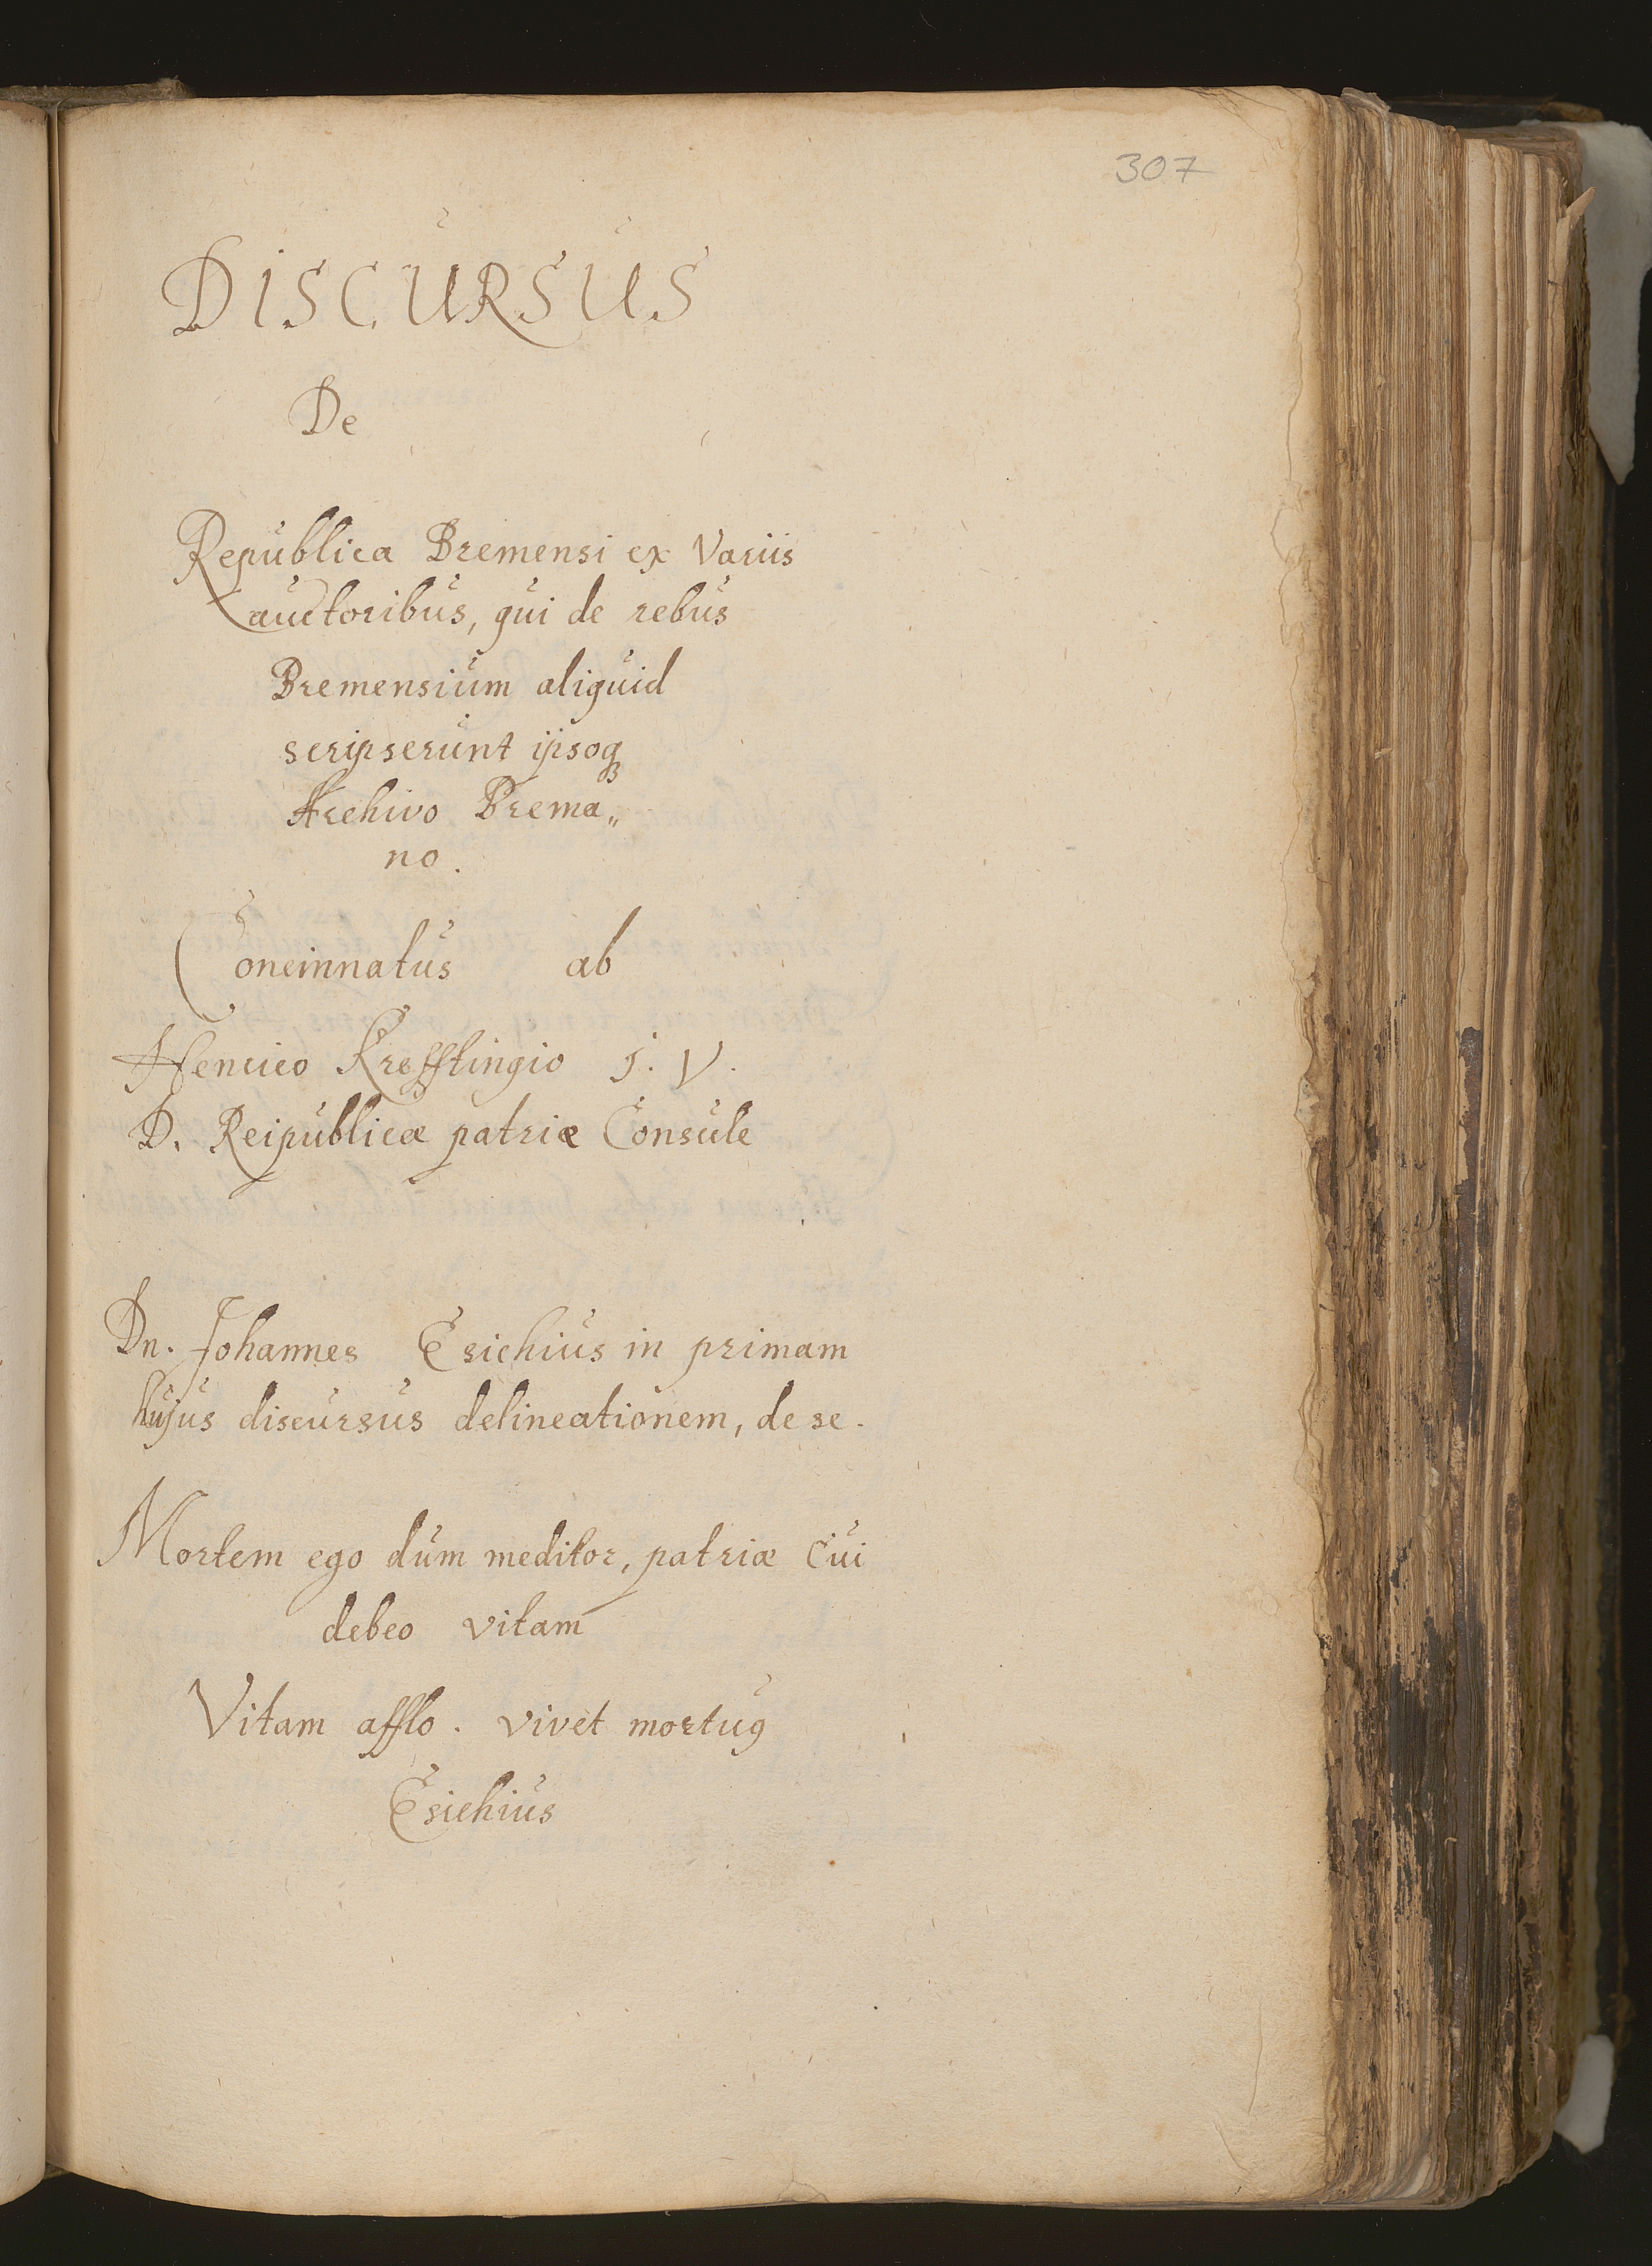 307
DISCURSUS
De
Republica Bremensi ex Variis
auctoribus, qui de rebus
Bremensium aliquid
scripserunt ipsoq
Archivo Brema„
no.
Concinnatus ab
Henrico Krefftingio J. V.
D. Reipublicæ patriæ Consule
Dn. Johannes Esichius in primam
hujus discursus delineationem, de se.
Mortem ego dum meditor, patriæ cui
debeo vitam
Vitam afflo. vivet mortuꝰ
Esichius